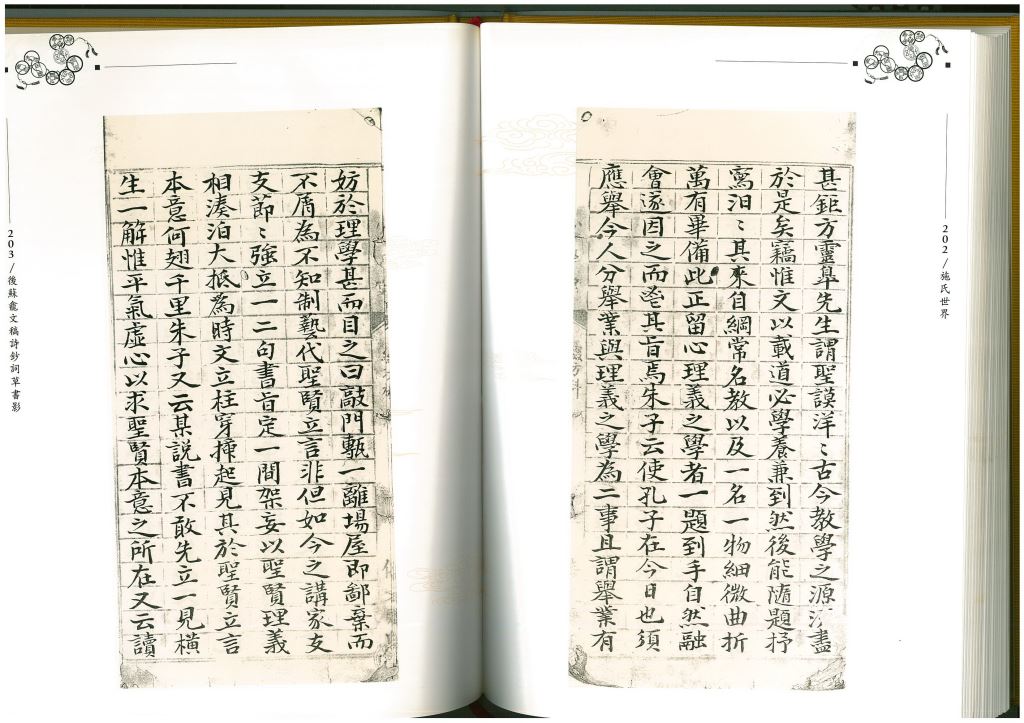 202/施氏世界
甚鉅方靈皋先生謂聖謨洋〻古今教學之源盡
於是矣竊惟文以載道必學養兼到然後能隨題抒
寫汨〻其來自綱常名教以及一名一物細微曲折
萬有畢備此正留心理義之學者一題到手自然融
會遂因之而鬯其旨焉朱子云使孔子在今日也須
應舉今人分舉業與理義之學為二事且謂舉業有
妨於理學甚而目之曰敲門甎一離場屋即鄙棄而
不屑為不知制藝代聖賢立言非但如今之講家支
支節〻強立一二句書旨定一間架妄以聖賢理義
相湊泊大抵為時文立柱穿揷起見其於聖賢立言
本意何翅千里朱子又云某説書不敢先立一見橫
生一解惟平氣虛心以求聖賢本意之所在又云讀
203/後蘇龕文稿詩鈔詞草書影